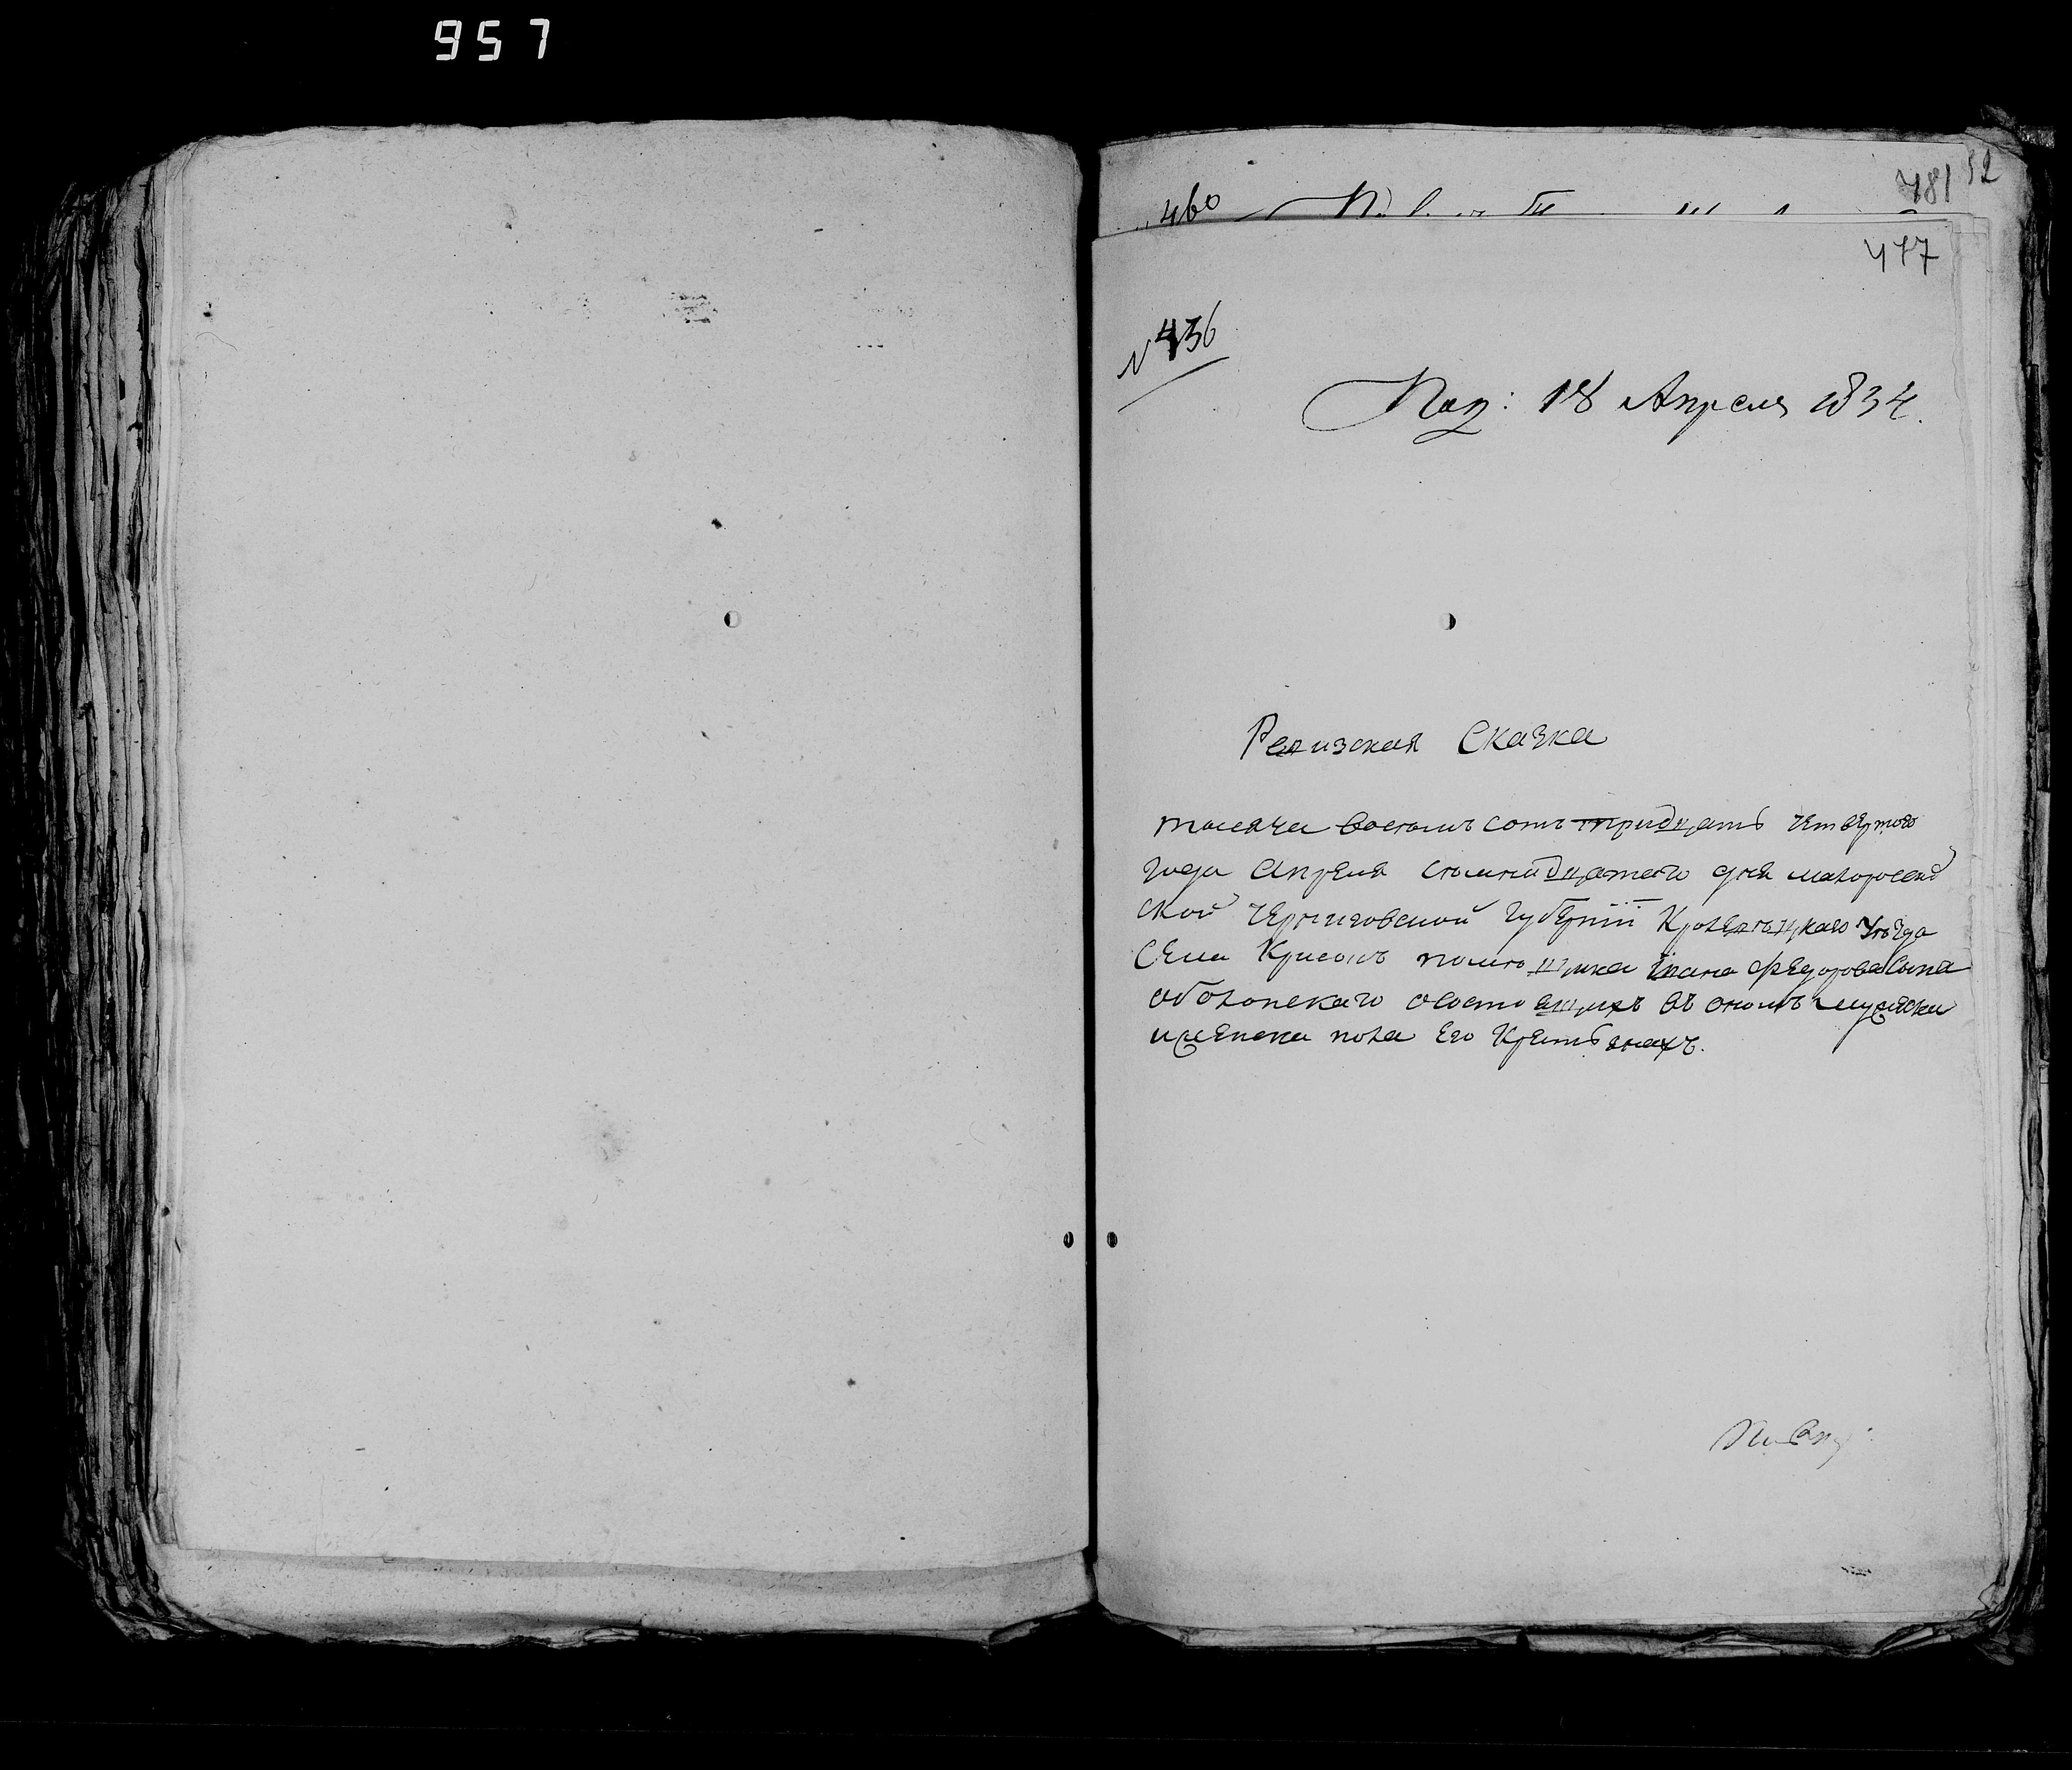 957
481 52
460
477
N 436
Под: 18 Апреля 1834.
Ревизская Сказка
тысяча восемь сотъ тридцать четвертого
года Апреля семнадцатаго дня малоросей
ской Черниговской Губернiи Кролевецкаго Уезда
Села помещика Ивана Федорова Сына
оболонскаго о состоящихъ въ ономъ мужеска
и женска пола Его Крепостныхъ.